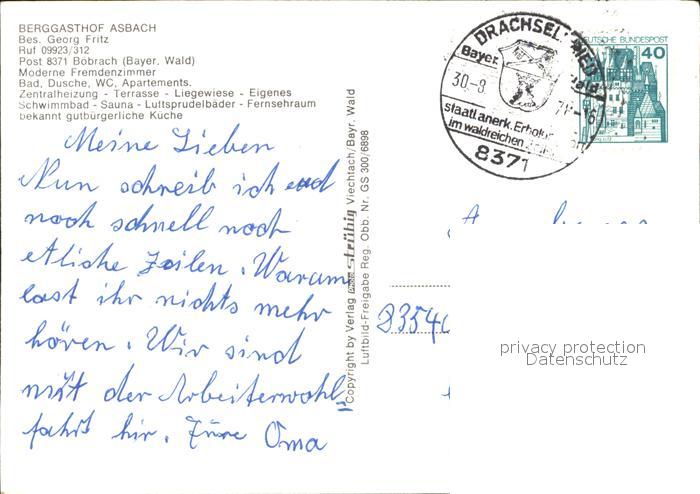 BERGGASTHOF ASBACH
Bes. Georg Fritz
Ruf 09923/312
Post 8371 Bobrach (Bayer. Wald)
Moderne Fremdenzimmer
Bad, Dusche, WC, Apartements.
Zentralheizung - Terrasse - Liegewiese - Eigenes
Schwimmbad - Sauna - Luftsprudelbäder - Fernsehraum
bekannt gutbürgerliche Küche
Meine Lieben
Nun schreib ich
noch schnell noch
etliche Zeilen. Warum
last ihr nichts mehr
hören. Wir sind
mit der Arbeiterwohl
fahrt hir. Eure Oma
Copyright by Verlag strühig Viechtach/Bayr. Wald
Luftbild-Freigabe Reg. Obb. Nr. GS 300/6898
DRACHSEL
Bayer.
30-8
staatl.anerk.Erholu
im waldreichen
8371
DEUTSCHE BUNDESPOST
40
D3540
privacy protection
Datenschutz